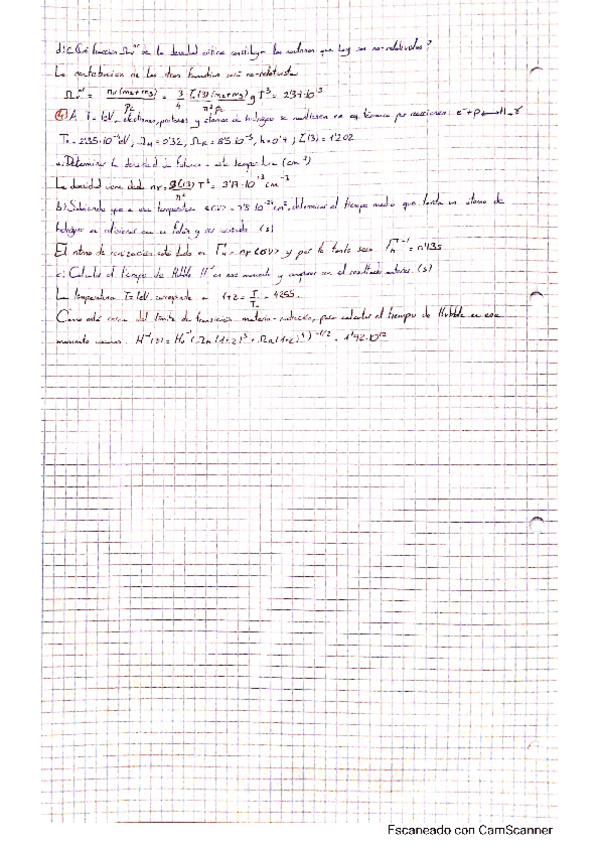 d) ¿Qué fracción Ωνⁿʳ de la densidad crítica constituyen los neutrinos que hoy son no-relativistas?
La contribución de las dos familias será no-relativista
Ωνⁿʳ = nν(m2+m3)/ρc = 3/4 ζ(3)(m2+m3)/π²ρc g T³ = 2'34·10⁻³
④ A T=1eV electrones, protones y átomos de hidrógeno se mantienen en eq. térmico por reacciones: e⁻+p ⟷ H + γ
T₀ = 2'35·10⁻⁴eV, Ωm = 0'32, Ωr = 8'5·10⁻⁵, h = 0'7; ζ(3) = 1'202
a) Determinar la densidad de fotones a esta temperatura (cm⁻³)
La densidad viene dada nγ = gζ(3)/π² T³ = 3'17·10¹³ cm⁻³
b) Sabiendo que a esa temperatura <σv> = cm², determinar el tiempo medio que tarda un átomo de
hidrógeno en colisionar con un fotón y ser ionizado (s)
El ritmo de ionización está dado en Γ = nγ<σv> y por lo tanto será Γ⁻¹ =
c) Calcular el tiempo de Hubble H⁻¹ en ese momento y comparar con el resultado anterior. (s)
La temperatura T=1eV corresponde a 1+z = T/T₀ = 4255.
Como está cerca del límite de transición materia-radiación, para calcular el tiempo de Hubble en ese
momento usamos: H⁻¹(z) = H₀⁻¹(Ωm(1+z)³ + Ωr(1+z)⁴)⁻¹/² = 1'42·10¹²
Escaneado con CamScanner